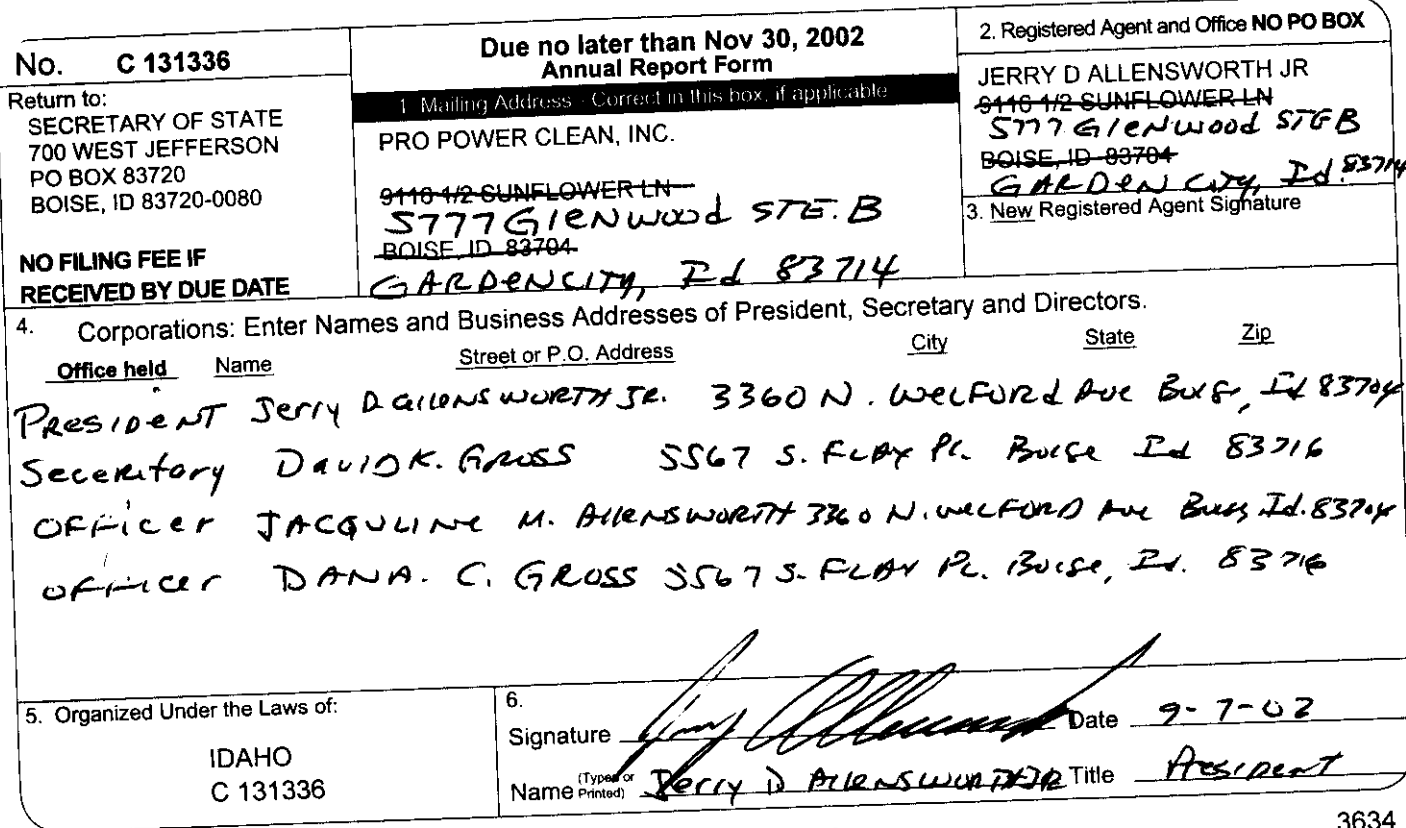 No. C 131336
Return to:
SECRETARY OF STATE
700 WEST JEFFERSON
PO BOX 83720
BOISE, ID 83720-0080
NO FILING FEE IF
RECEIVED BY DUE DATE
Due no later than Nov 30, 2002
Annual Report Form
1. Mailing Address - Correct in this box, if applicable
PRO POWER CLEAN, INC.
9116 1/2 SUNFLOWER LN
5777 GlENwood STE. B
BOISE, ID 83704
GARDENCITY, Id 83714
2. Registered Agent and Office NO PO BOX
JERRY D ALLENSWORTH JR
9116 1/2 SUNFLOWER LN
5777 GlENwood STE B
BOISE, ID 83704
GARDEN City, Id. 83714
3. New Registered Agent Signature
4. Corporations: Enter Names and Business Addresses of President, Secretary and Directors.
Office held Name Street or P.O. Address City State Zip
PRESIDENT Jerry D. AllENSWORTH JR. 3360 N. WELFORd Ave Id 83704
Seceretory DAVID K. GROSS 5567 S. FLAX Pl. Boise Id 83716
OFFicer JACQULINE M. AllENSWORTH 3360 N. WELFORD Ave Id. 83704
officer DANA. C. GROSS 5567 S. FLAX PL. Boise, Id. 83716
5. Organized Under the Laws of:
IDAHO
C 131336
6.
Signature Date 9-7-02
Name (Typed or Printed) Jerry D AllENSWORTH JR Title President
3634